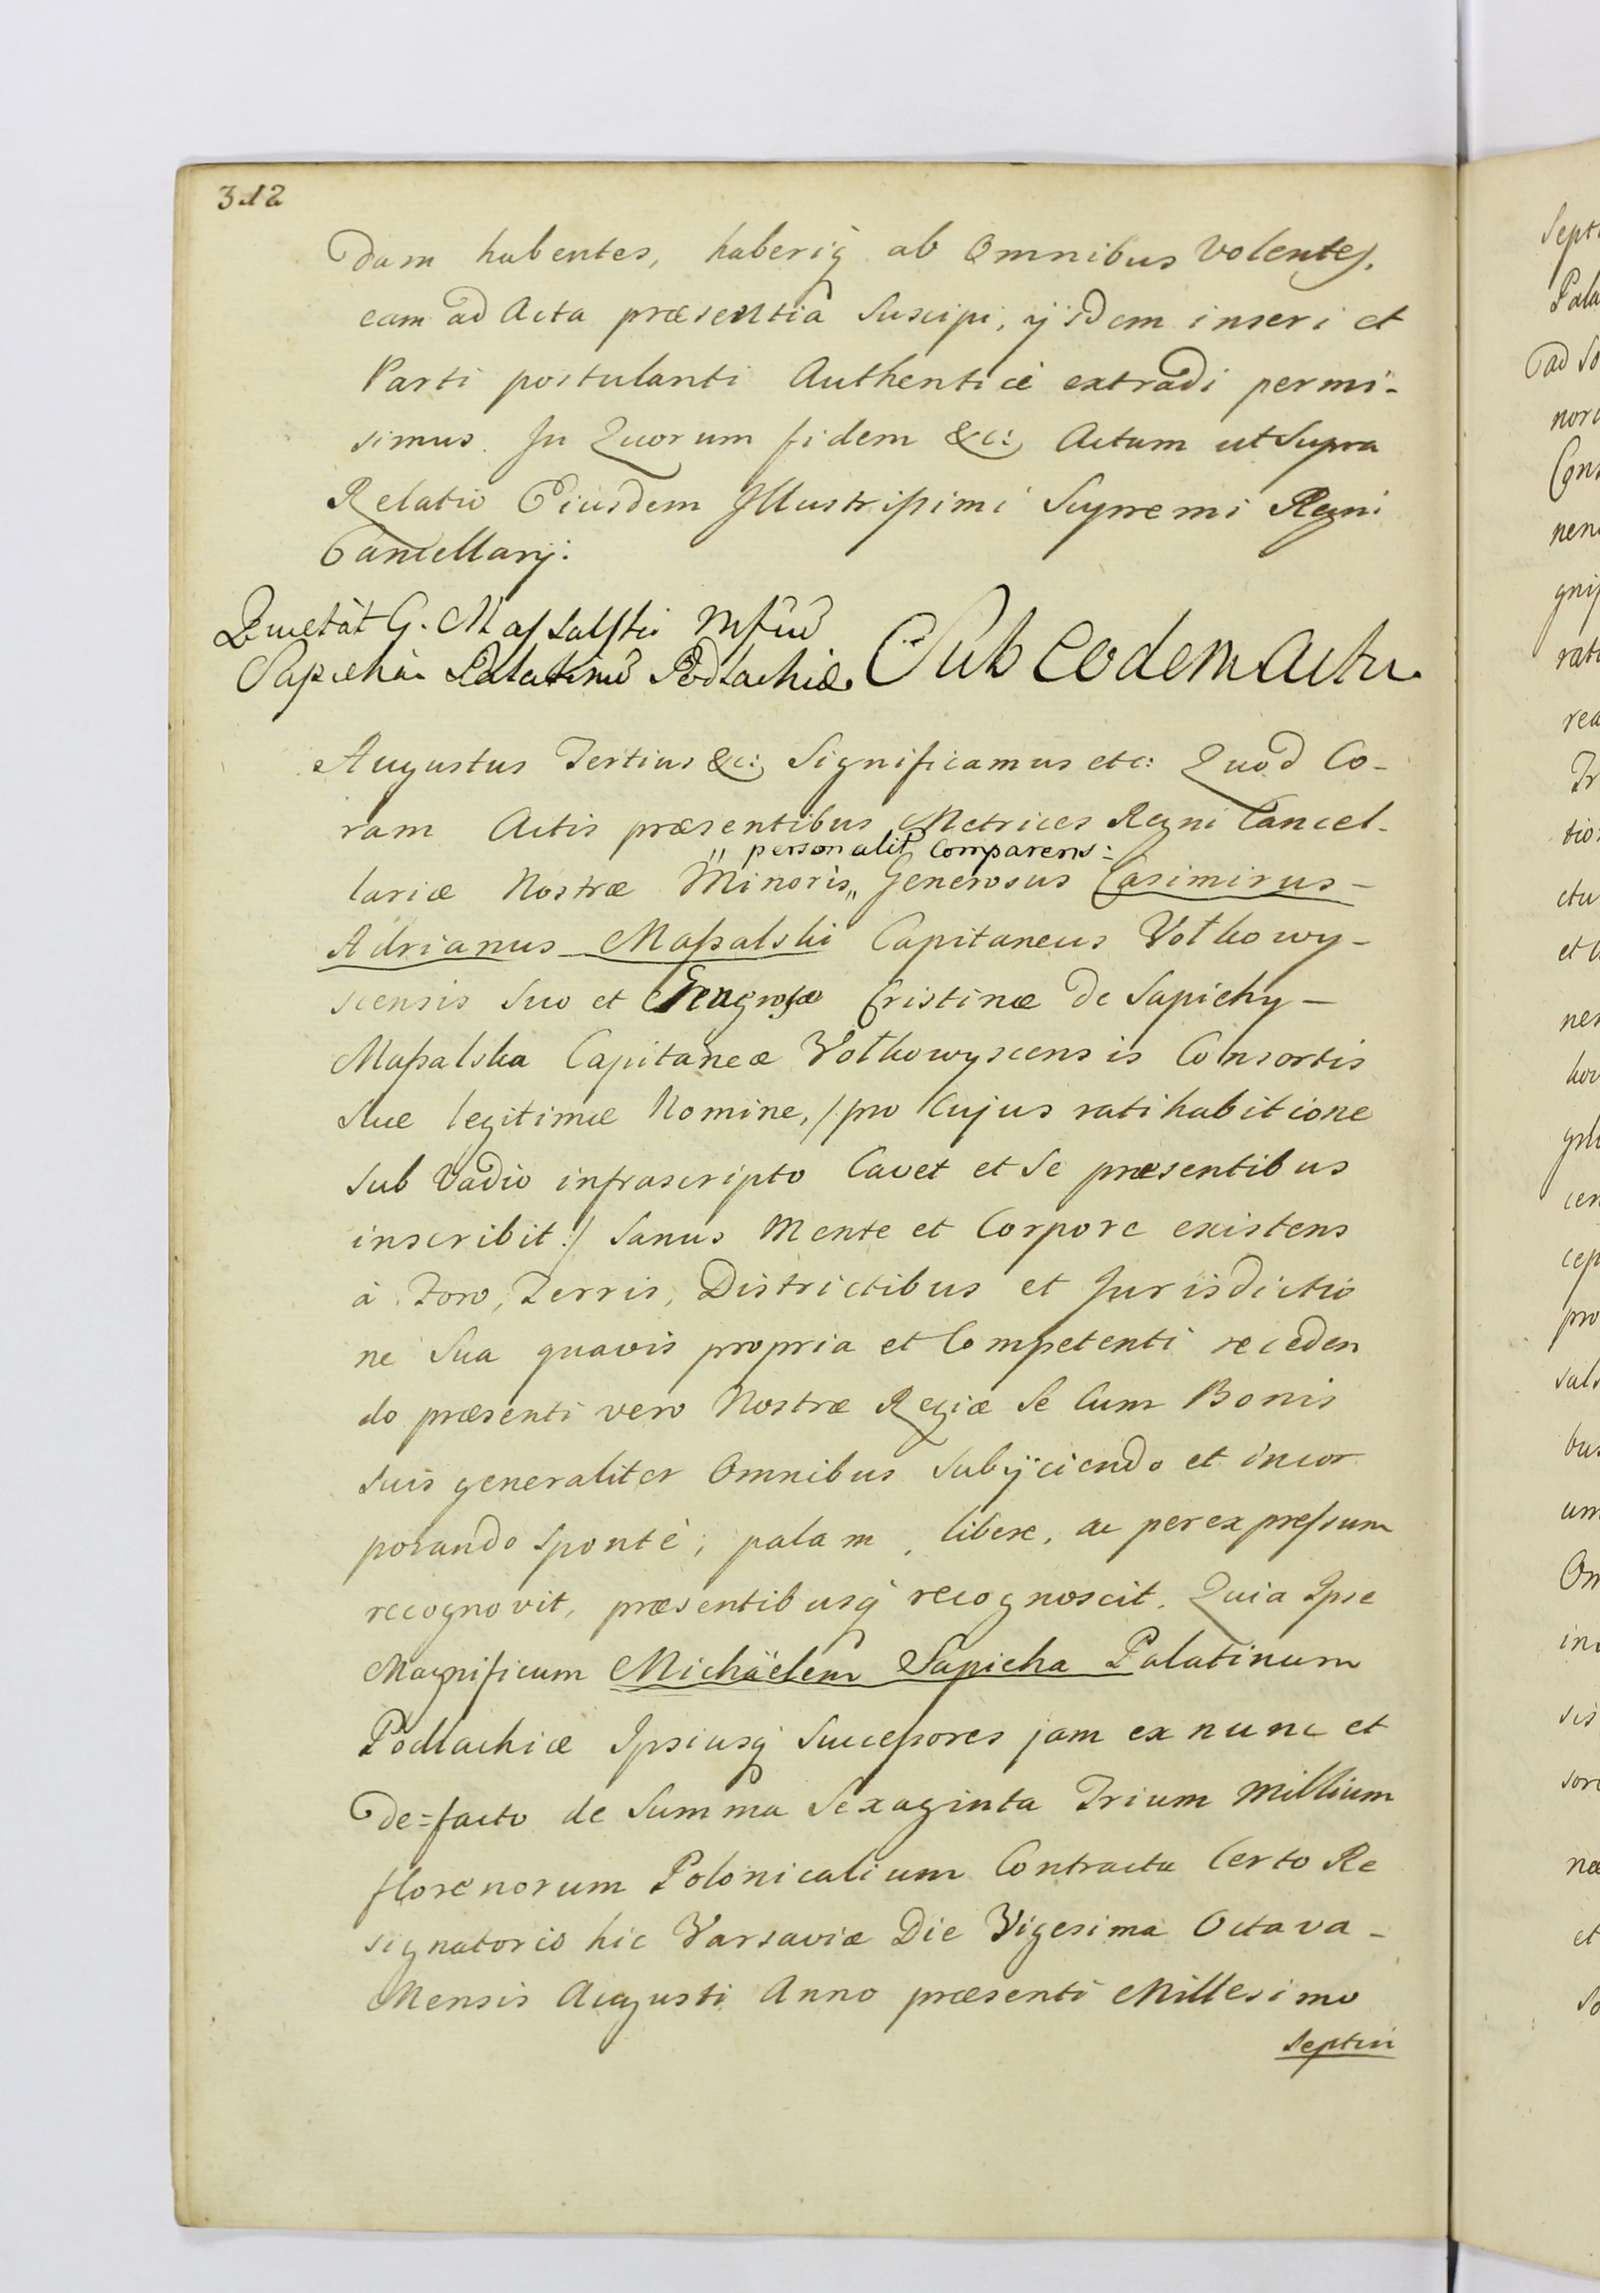 312
dam habentes, haberiq ab Omnibus Volentes.
eam ad Acta præsentia Suscipi, ijsdem inseri et
Parti postulanti Authenticè extradi permi-
simus. In Quorum fidem &c: Actum ut Supra
Relatio Eiusdem Illustrissimi Supremi Regni
Cancellarij:
Quietat G. Massalski Mfcũ
Sapieha Palatinũ Podlachiæ. Sub eodem Actu.
Augustus Tertius &c: Significamus etc: Quod Co-
ram Actis præsentibus Metrices Regni Cancel-
„ personalit Comparens:
lariæ Nostræ Minoris „ Generosus Casimirus -
Adrianus Massalski Capitaneus Wołkowy-
scensis Suo et Cristinæ de Sapiehy -
Massalska Capitaneæ Wołkowyscensis Consortis
Suæ legitimæ Nomine, /: pro Cujus ratihabitione
sub Vadio infrascripto Cavet et Se præsentibus
inscribit :/ Sanus Mente et Corpore existens
à Foro, Terris, Districtibus et Jurisdictio
ne Sua quavis propria et Competenti receden
do præsenti vero Nostræ Regiæ Se Cum Bonis
suis generaliter Omnibus Subijciendo et incor
porando sponte, palam, libere, ac per expressum
recognovit, præsentibusq recognoscit. Quia Ipse
Magnificum Michäelem Sapieha Palatinum
Podlachiæ Ipsiusq Successores jam ex nunc et
De=facto de Summa Sexaginta Trium Millium
florenorum Polonicalium Contractu Certo Re
signatorio hic Varsaviæ Die Vigesima Octava -
Mensis Augusti Anno præsenti Millesimo
Septin